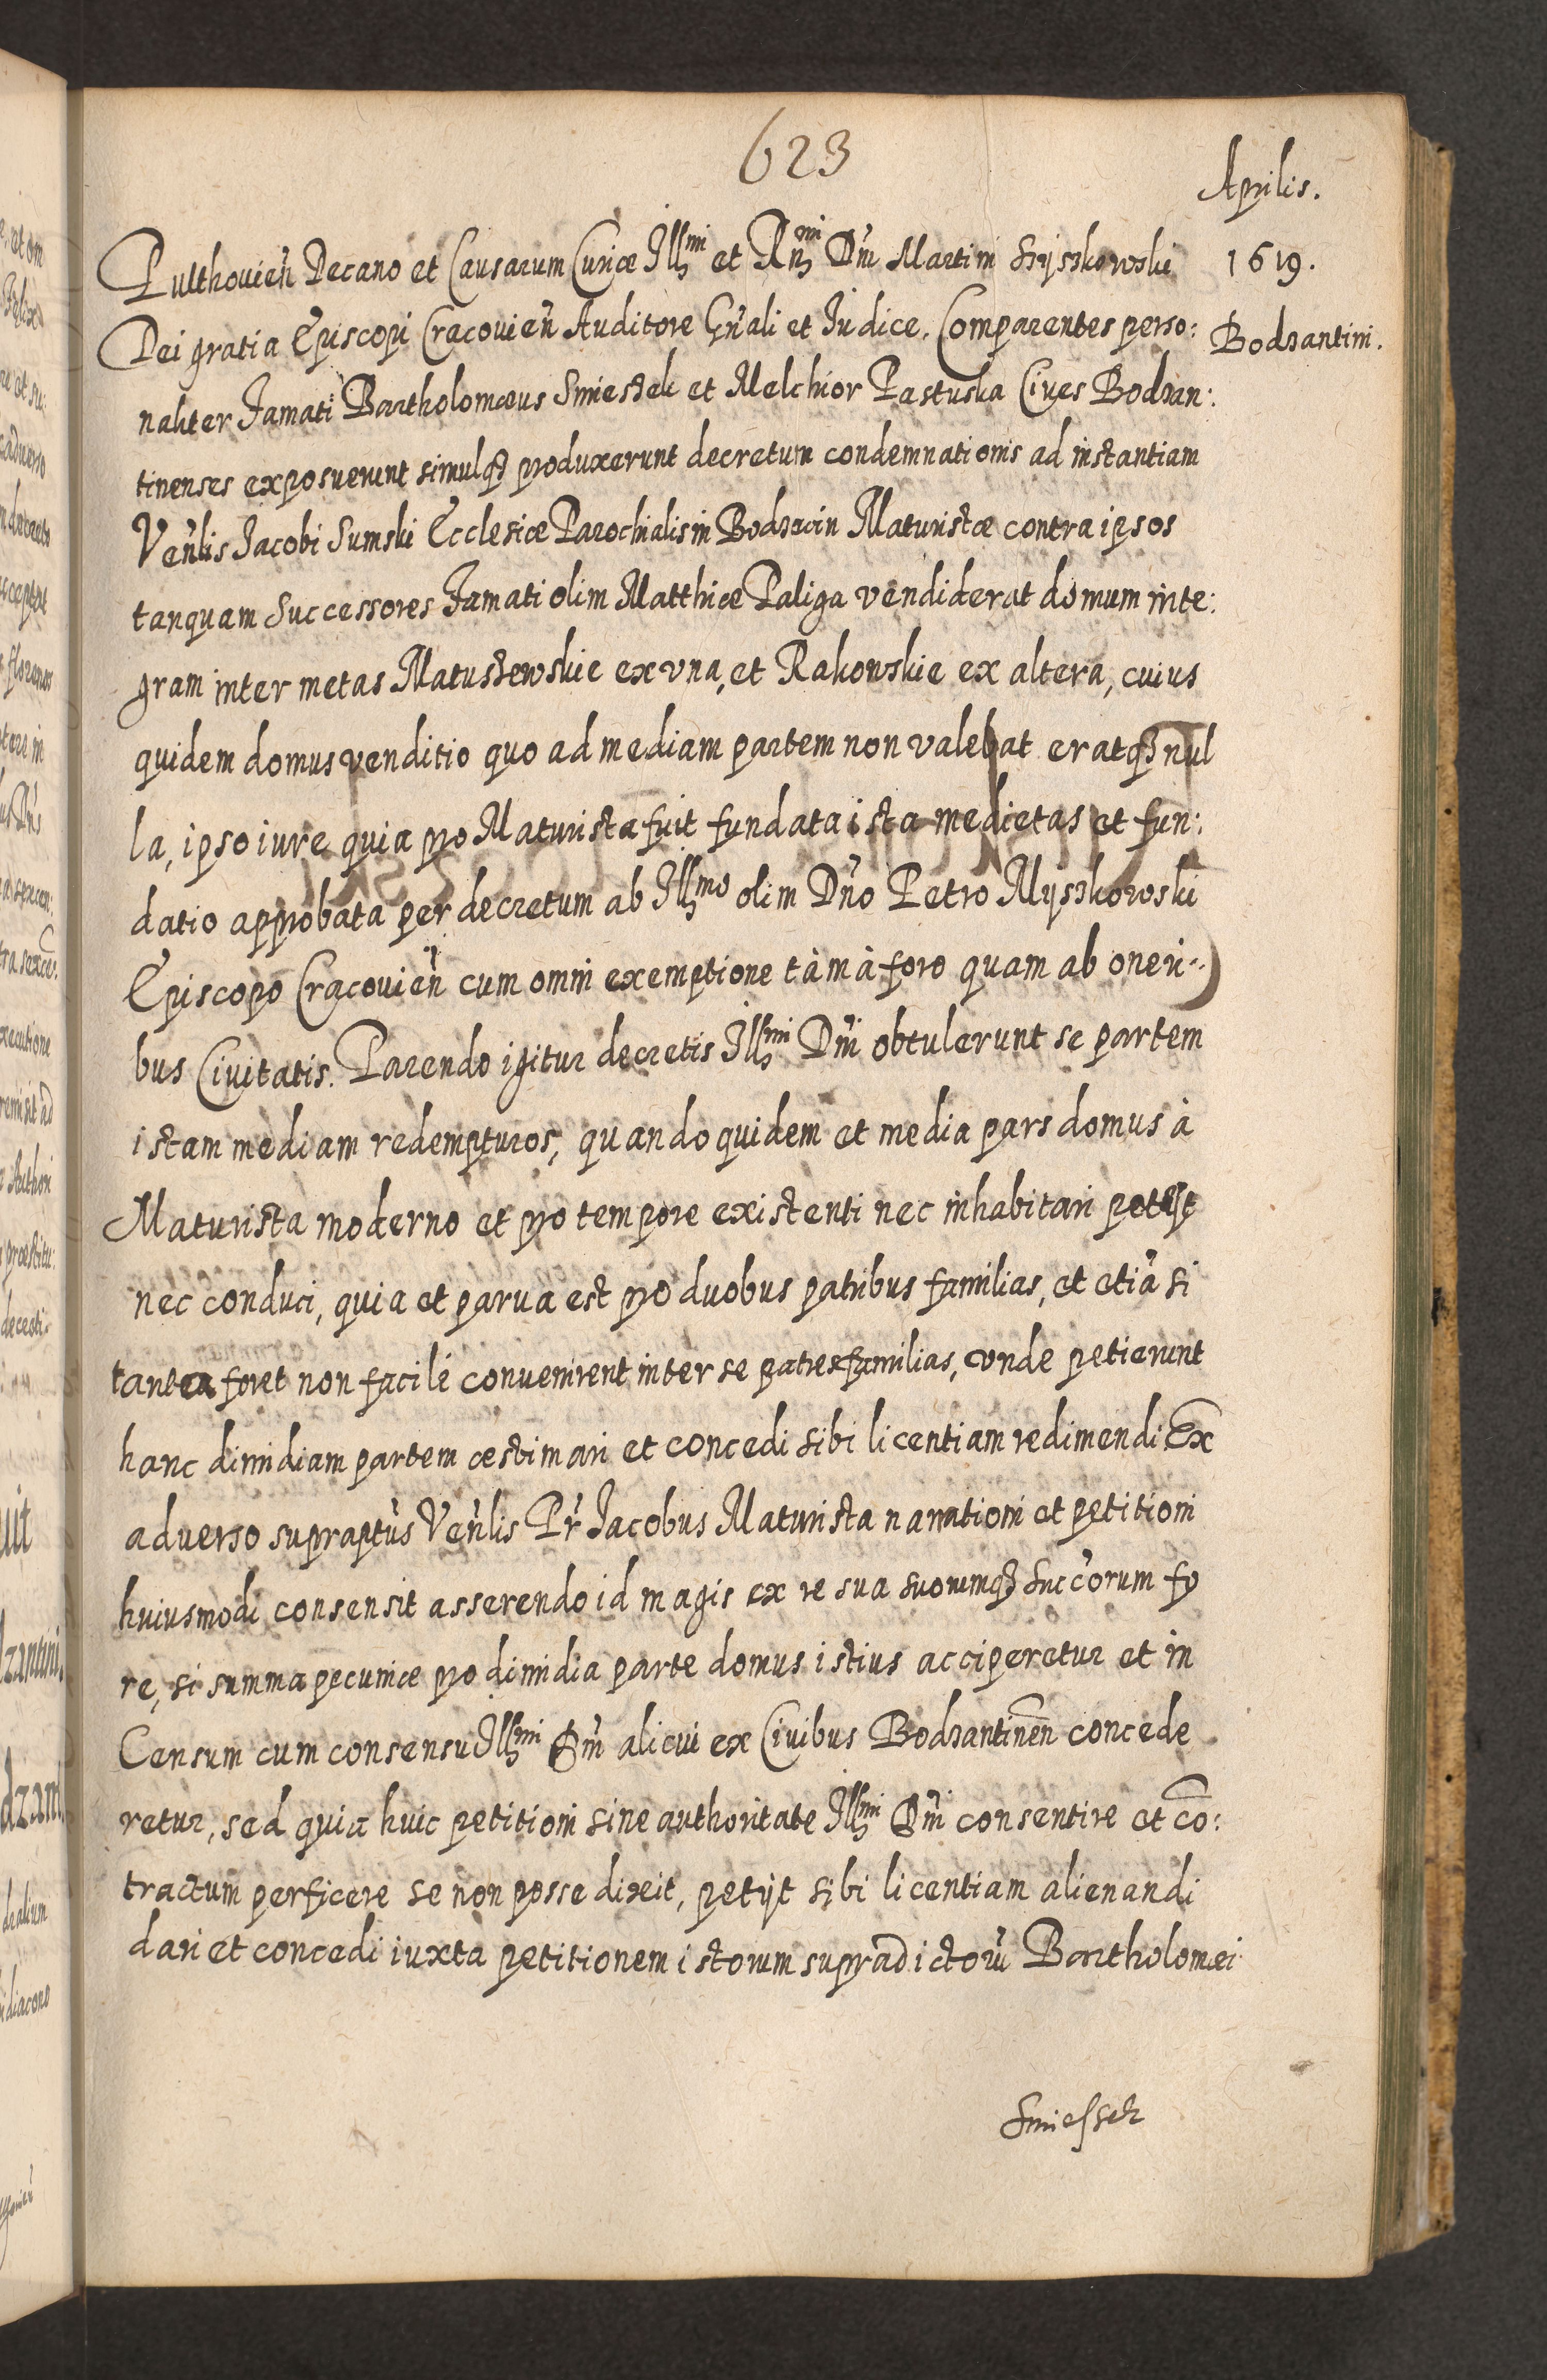 623
Aprilis.
1619.
Bodzantini.
Pulthovień Decano et Causarum Curiæ Illmi et Rńmi Dńi Martini Szyszkowski
Dei gratia Episcopi Cracovień Auditore Gńali et Iudice. Comparentes perso:
naliter famati Bartholomæus Smieszek et Melchior Pastuska Cives Bodzan:
tinenses exposuerunt simulqȝ produxerunt decretum condemnationis ad instantiam
Veńlis Jacobi Sumski Ecclesiæ Parochialis in Bodzecin Maturistæ contra ipsos
tanquam Successores famati olim Matthiæ Paliga vendiderat domum inte:
gram inter metas Matuszewskie ex vna, et Rakowskie ex altera, cuius
quidem domus venditio quo ad mediam partem non valebat eratqȝ nul
la, ipso iure quia pro Maturista fuit fundata ista medietas et fun:
datio approbata per decretum ab Illmo olim Dńo Petro Myszkowski
Episcopo Cracovień cum omni exemptione tàm à foro quam ab oneri:
bus Civitatis. Parendo igitur decretis Illmi Dńi obtulerunt se partem
istam mediam redempturos, quandoquidem et media pars domus à
Maturista moderno et pro tempore existenti nec inhabitari potest
nec conduci, quia et parua est pro duobus patribus familias, et etiā si
tanta foret non facilè convenirent inter se patresfamilias, vnde petierunt
hanc dimidiam partem æstimari et concedi sibi licentiam redimendi Ex
adverso supraptus Veńlis Pr Jacobus Maturista narrationi et petitioni
huiusmodi consensit asserendo id magis ex re sua suorumqȝ succorum fo
re, si summa pecuniæ pro dimidia parte domus istius acciperetur et in
Censum cum consensu Illmi Dńi alicui ex Civibus Bodzantineń concede
retur, sed quia huic petitioni sine authoritate Illmi Dńi consentire et cō:
tractum perficere se non posse dixit, petijt sibi licentiam alienandi
dari et concedi iuxta petitionem istorum supradictorū Bartholomæi
Smieszek